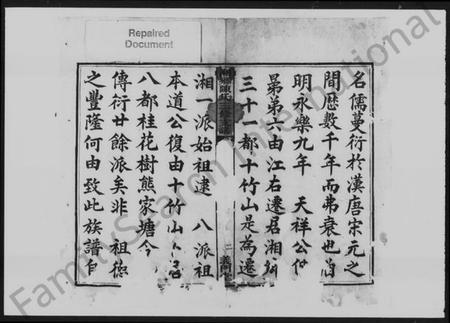 Repaired
Document
名儒蔓衍於漢唐宋元之
間歷數千年而弗衰也
明永樂九年 天祥公
弟六由江右遷居湘
三十一都十竹山是為遷
湘一派始祖逮 八派祖
本道公復由十竹山
八都桂花樹熊家塘今
傳衍廿餘派矣非 祖德
之豐隆何由致此族譜
二
Sharon International